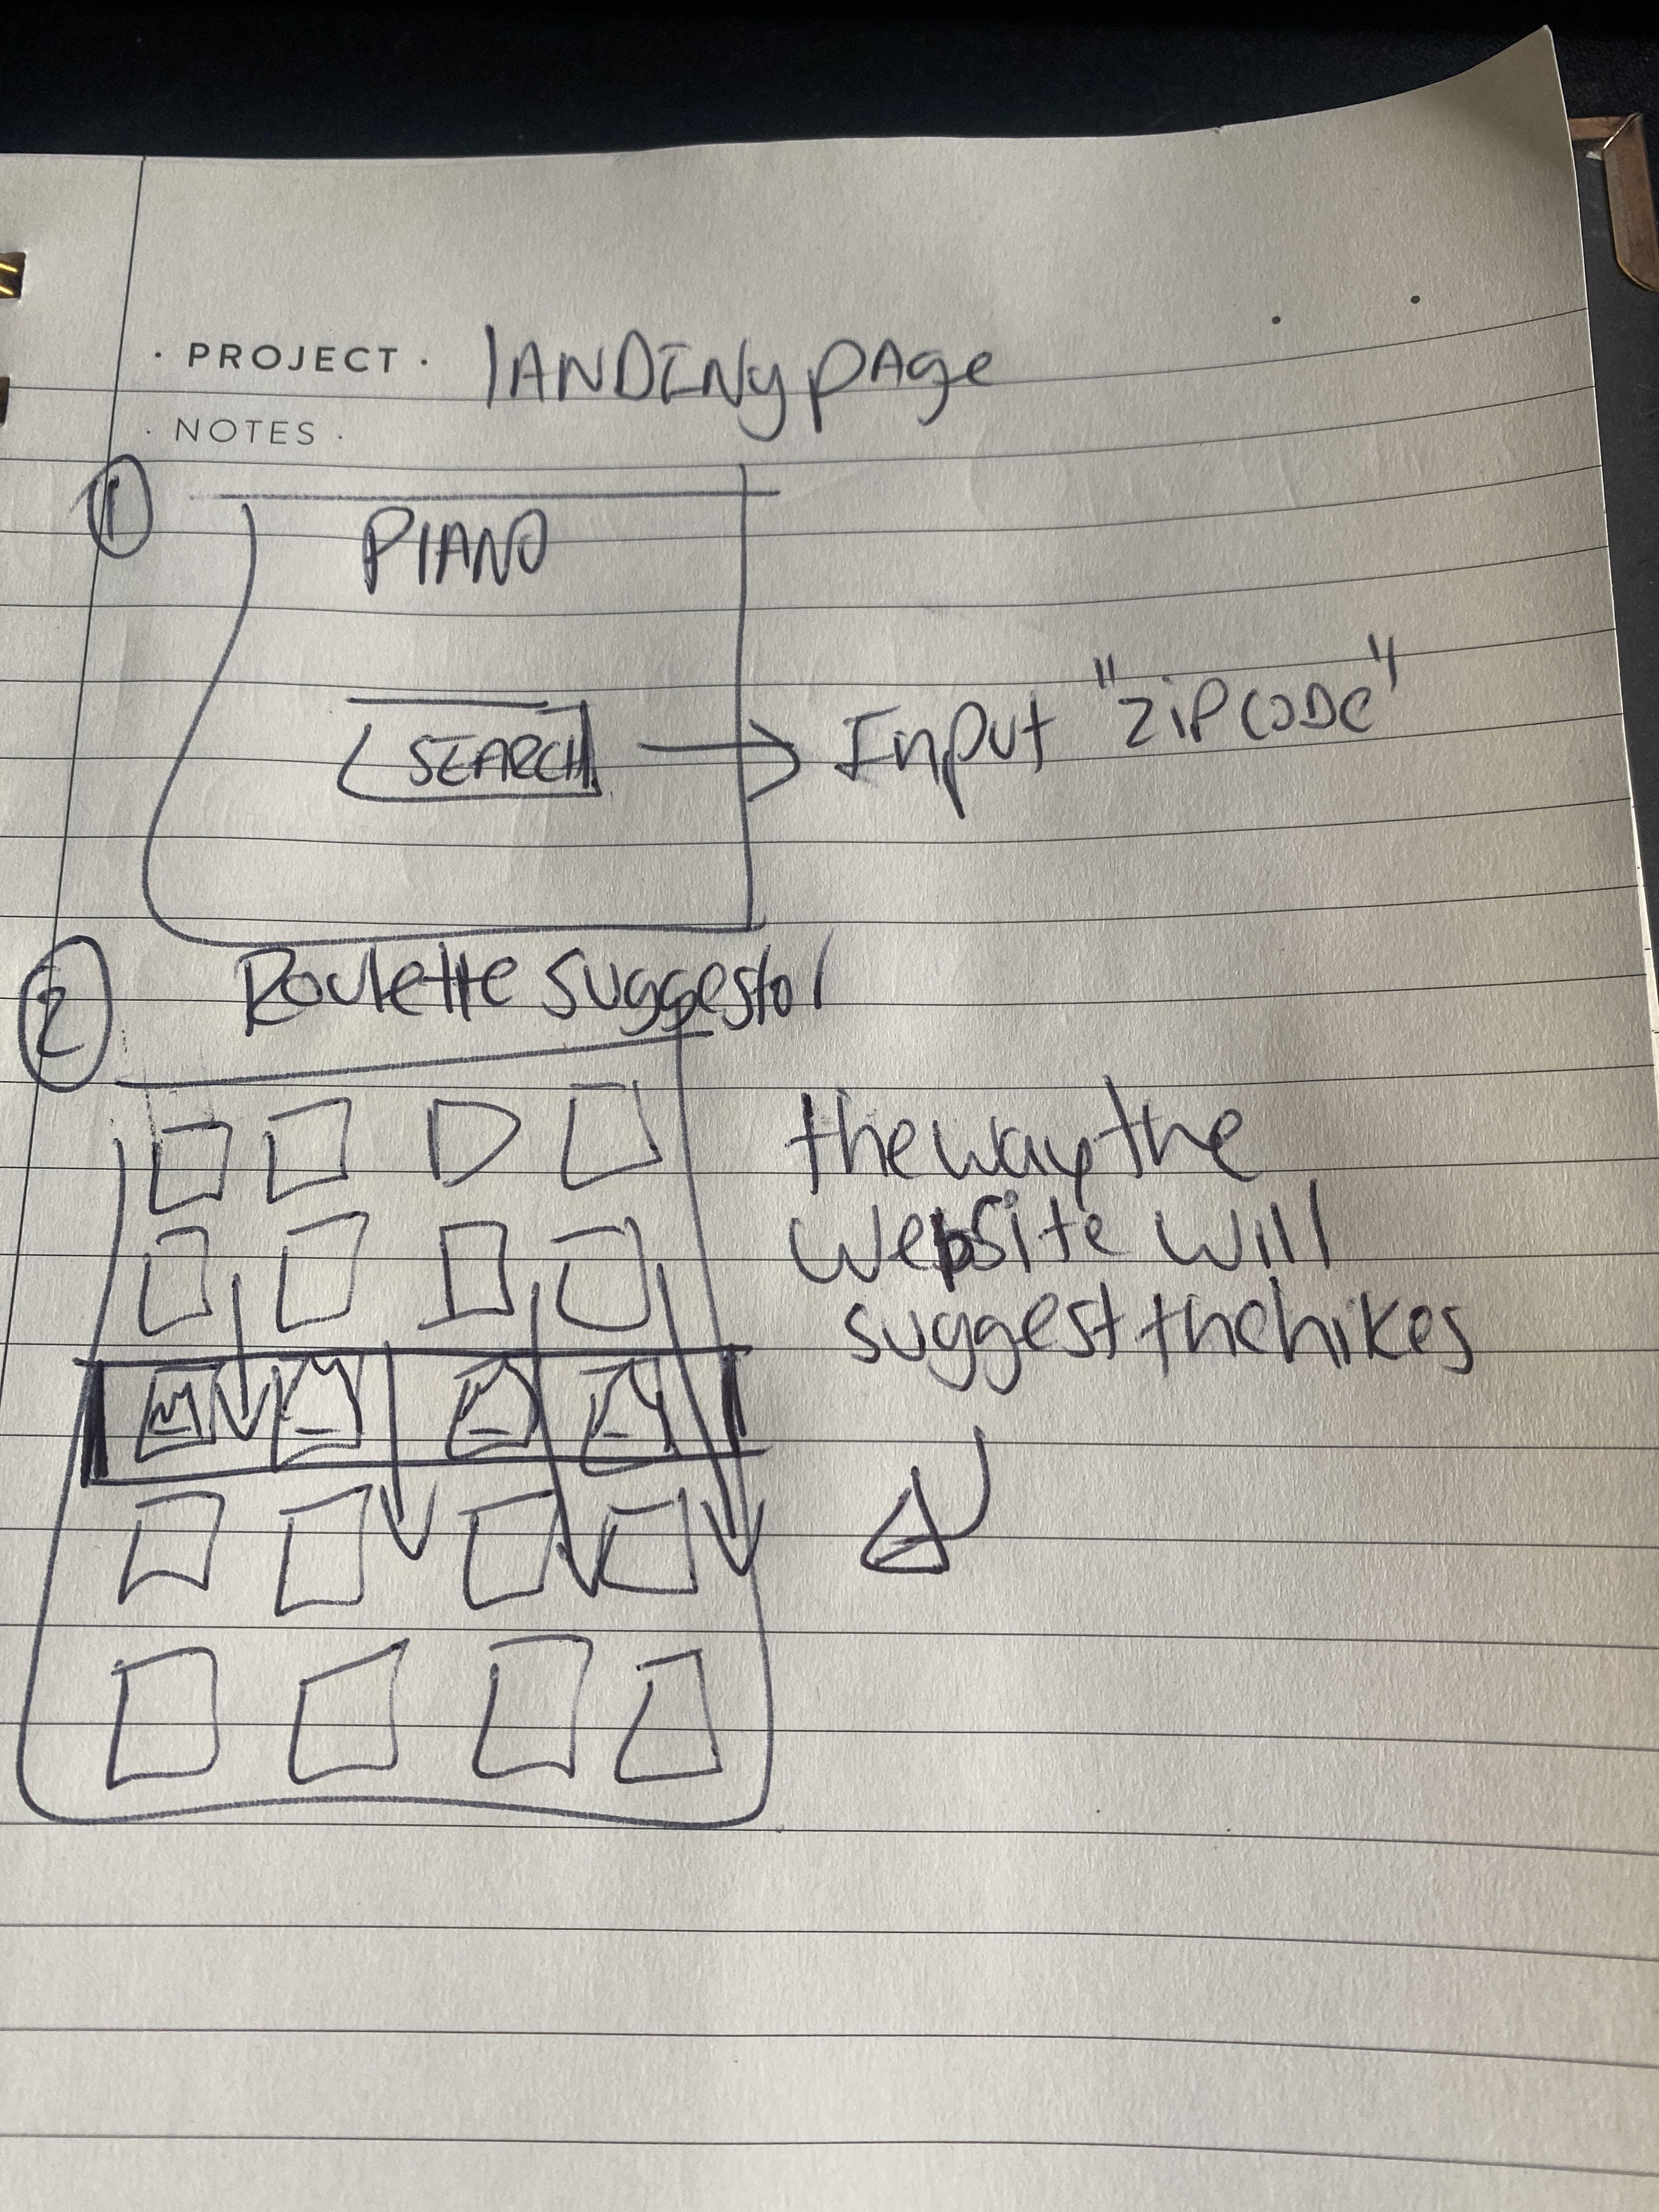 · PROJECT · lANDINg pAge
· NOTES ·
1
PIANO
SEARCH
Input "ZiPCODe"
2
Roulette Suggestor
the way the
website will
suggest the hikes